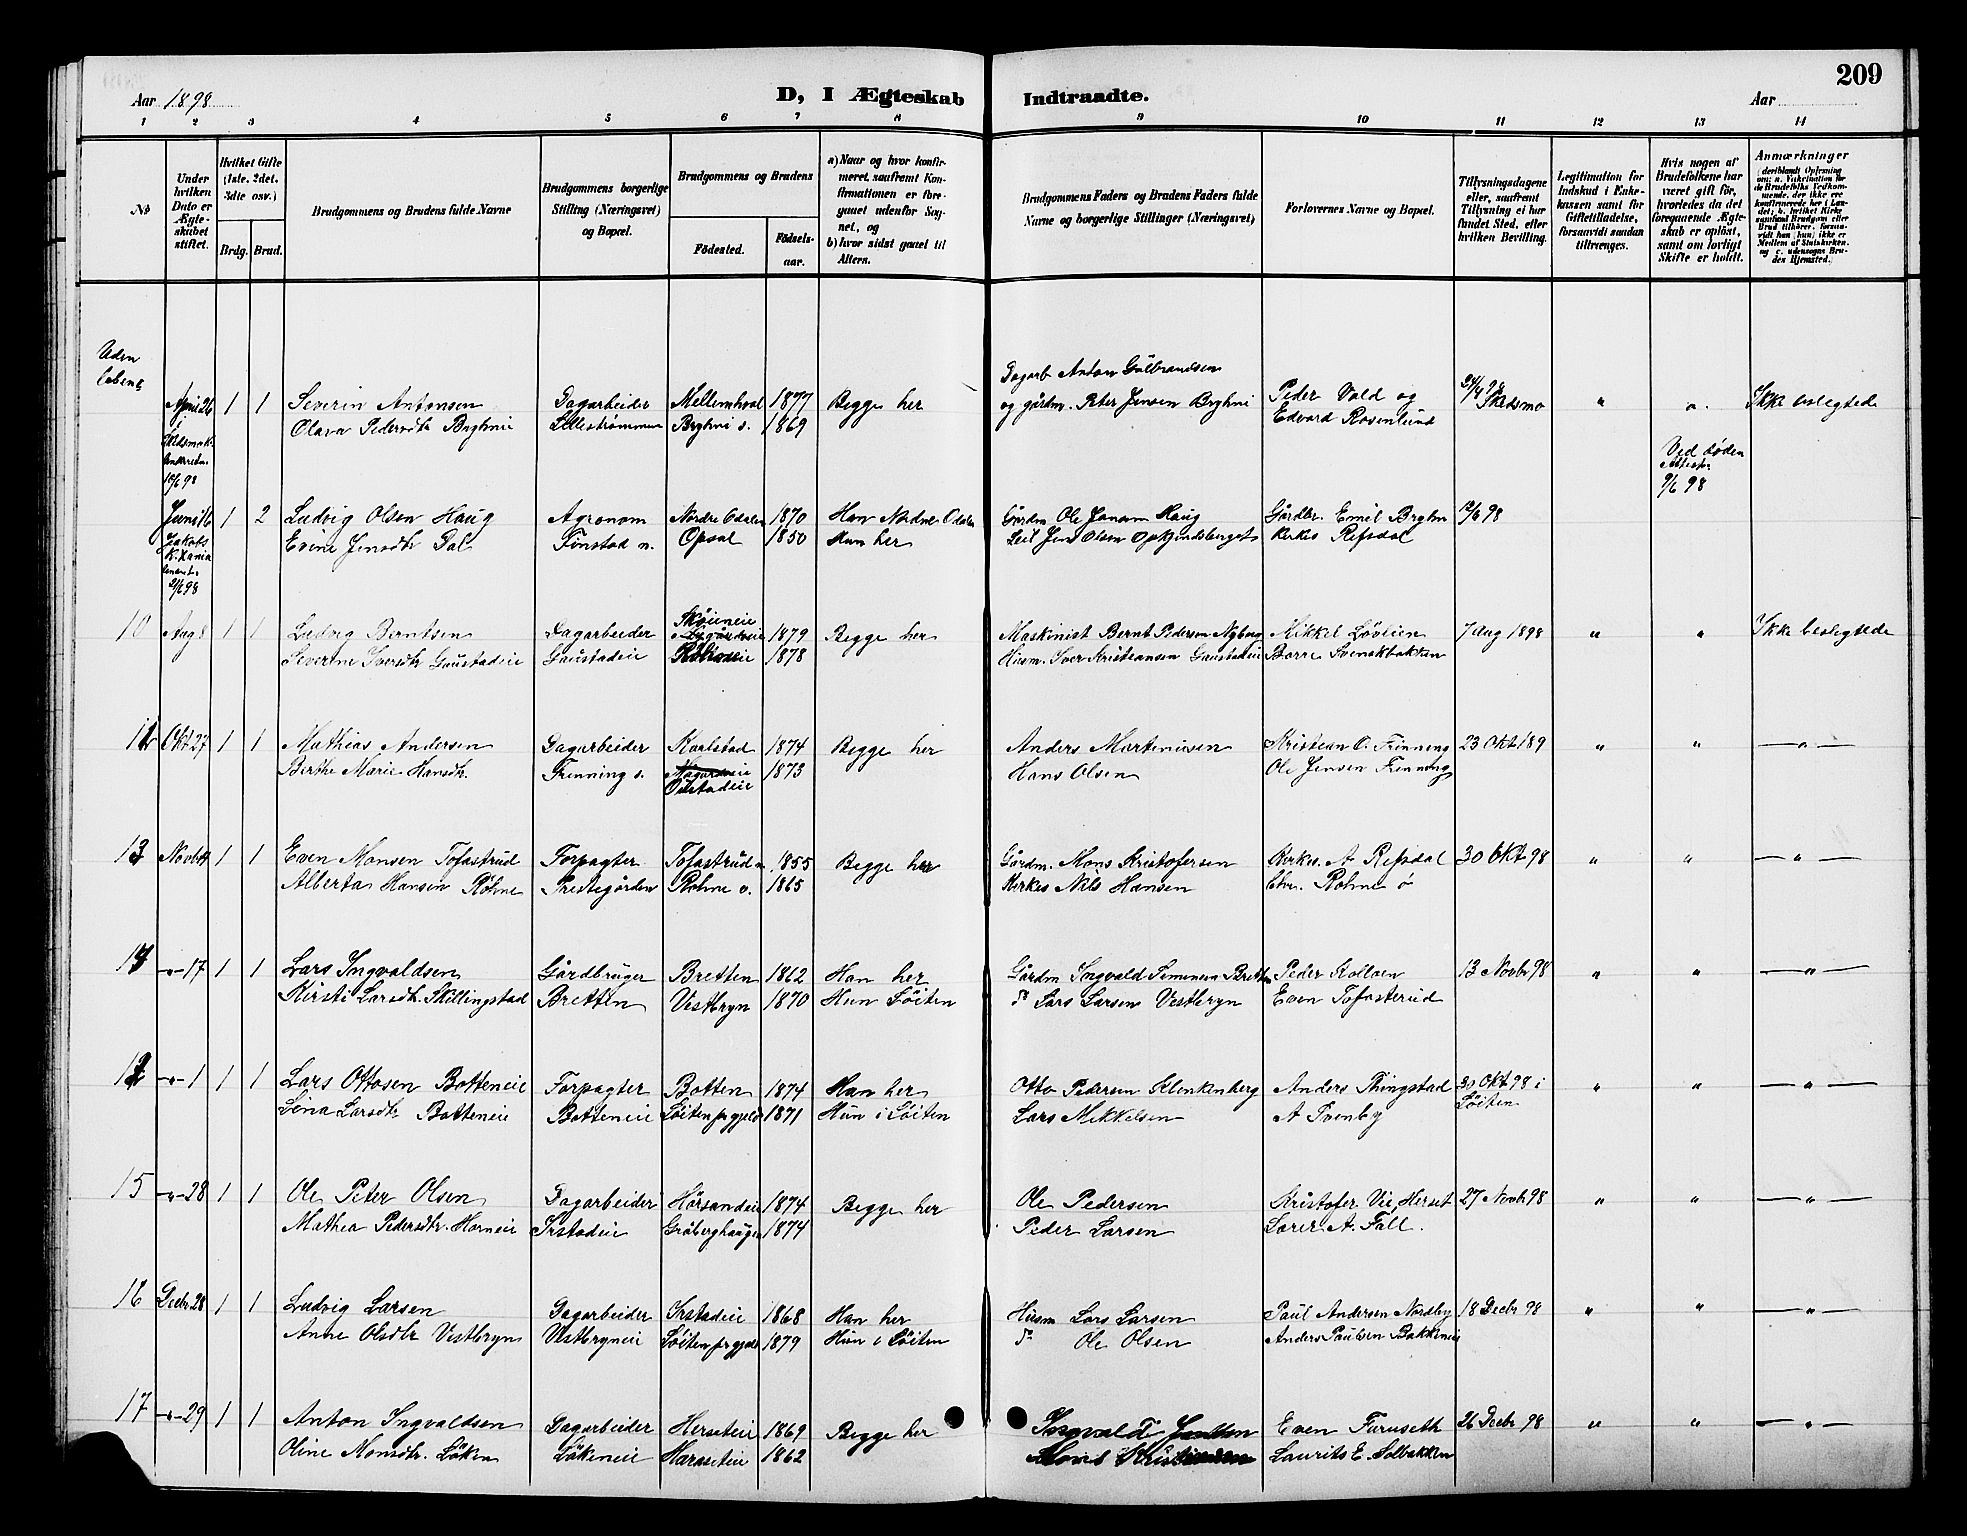 209
Aar 1898 D, I Ægteskab Indtraadte. Aar
1 2 3 4 5 6 7 8 9 10 11 12 13 14
No
Under hvilken Dato er Ægteskabet stiftet.
Hvilket Gifte (1ste, 2det, 3die osv.)
Brdg. Brud.
Brudgommens og Brudens fulde Navne
Brudgommens borgerlige Stilling (Næringsvei) og Bopæl.
Brudgommens og Brudens
Födested.
Födselsaar.
a) Naar og hvor konfirmeret, saafremt Konfirmationen er foregaaet udenfor Sognet, og
b) hvor sidst gaaet til Alters.
Brudgommens Faders og Brudens Faders fulde Navne og borgerlige Stillinger (Næringsvei)
Forlovernes Navne og Bopæl.
Tillysningsdagene eller, saafremt Tillysning ei har fundet Sted, efter hvilken Bevilling.
Legitimation for Indskud i Enkekassen samt for Giftetilladelse, forsaavidt saadan tiltrænges.
Hvis nogen af Brudefolkene har været gift før, hvorledes da det foregaaende Ægteskab er oplöst, samt om lovligt Skifte er holdt.
Anmærkninger
Uden
April 26 1 1 Severin Antonsen Dagarbeider Mellemhol 1877 Begge her Dagarb Anton Gulbrandsen Peder Vold og 24/4 98 Skedsmo " " Ikke beslegtede
Olava Pedersdtr Bryhni Lillestrømmen Bryhni s. 1869 og gårdm. Peter Jensen Bryhni Edvard Rosenlund
10/6 98
Ved døden
9/6 98
Juni 16 1 2 Ludvig Olsen Haug Agronom Nordre Odalen 1870 Han Nordre Odalen Gårdm Ole Jonsen Haug Gårdbr. Emil Bryhn 12/6 98
Jakobs K. Xania Evene Jensdtr Dal Finstad n. Opsal 1850 Hun her Jens Olsen Opkjendsberget Kirkes Refsdal
21/6 98
10 Aug 8 1 1 Ludvig Berntsen Dagarbeider 1879 Begge her Maskinist Bernt Pedersen Nyborg Mikkel Løvlien 7 Aug 1898 " " Ikke beslegtede
Severine Iversdtr Gaustadeie Gaustadeie 1878 Husm. Iver Kristiansen Gaustadeie Borre Svenskbakken
11 Okt 27 1 1 Mathias Andersen Dagarbeider Karlstad 1874 Begge her Anders Martiniusen Kristian O. Frenning 23 Okt 189 " " —"—
Berthe Marie Hansdtr. Frenning s. 1873 Hans Olsen Ole Jensen Frenning
13 Novbr 4 1 1 Even Monsen Tofastrud Forpagter Tofastrud n. 1855 Begge her Gårdm. Mons Kristofersen Kirkes. A Refsdal 30 Okt 98 " " —"—
Alberta Hansen Röhne Prestegården Röhne v. 1865 Kirkes Nils Hansen Chr. Rohne ö
14 -"- 17 1 1 Lars Ingvaldsen Gårdbruger Bretten 1862 Han her Gårdm Ingvald Simensen Bretten Peder Kolloen 13 Novbr 98 " " —"—
Kirsti Larsdtr. Skillingstad Bretten Vestbryn 1870 Hun Löiten do Lars Larsen Vestbryn Even Tofasterud
12 -"- 1 1 1 Lars Ottosen Botteneie Forpagter Botten 1874 Han her Otto Pedersen Klenkenberg Anders Thingstad 30 Okt 98 i Löiten " " —"—
Lina Larsdtr Botteneie Botteneie Löiten prgjeld 1871 Hun i Löiten Lars Mikkelsen A Tvenby
15 -"- 28 1 1 Ole Peter Olsen Dagarbeider Hörsandeie 1874 Begge her Ole Pedersen Kristofer Vie, Herset 27 Novbr 98 " " —"—
Mathea Pedersdtr. Horneie Irstadeie Gråberghaugen 1874 Peder Larsen A. Fall.
16 Decbr 28 1 1 Ludvig Larsen Dagarbeider Irstadeie 1868 Han her Husm Lars Larsen Paul Andersen Nordby 18 Decbr 98 " " —"—
Anne Olsdtr Vestbryn Vestbryneie Löiten prgjeld 1879 Hun i Löiten do Ole Olsen Anders Paulsen Bakkeneie
17 -"- 29 1 1 Anton Ingvaldsen Dagarbeider Herseteie 1869 Begge her Ingvald Even Furuseth 26 Decbr 98 " " —"—
Oline Monsdtr. Löken Lökeneie Haraseteie 1862 Laurits E. Solbakken